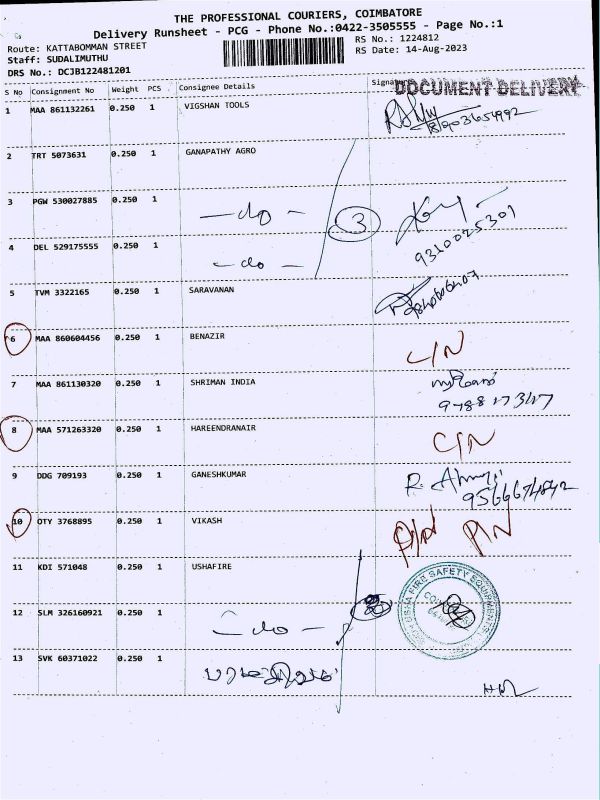 THE PROFESSIONAL COURIERS, COIMBATORE
Delivery Runsheet - PCG - Phone No.:0422-3505555 - Page No.:1
Route: KATTABOMMAN STREET
Staff: SUDALIMUTHU
DRS No.: DCJB122481201
RS No.: 1224812
RS Date: 14-Aug-2023
S No Consignment No Weight PCS Consignee Details
DOCUMENT DELIVERY
1 MAA 861132261 0.250 1 VIGSHAN TOOLS
2 TRT 5073631 0.250 1 GANAPATHY AGRO
3 PGW 530027885 0.250 1 -do- 3
9310025301
4 DEL 529175555 0.250 1 -do-
5 TVM 3322165 0.250 1 SARAVANAN
6 MAA 860604456 0.250 1 BENAZIR C/N
7 MAA 861130320 0.250 1 SHRIMAN INDIA
8 MAA 571263320 0.250 1 HAREENDRANAIR C/N
9 DDG 709193 0.250 1 GANESHKUMAR
10 OTY 3768895 0.250 1 VIKASH P/N P/N
11 KDI 571048 0.250 1 USHAFIRE
USHA FIRE SAFETY EQUIPMENTS
12 SLM 326160921 0.250 1 -do-
13 SVK 60371022 0.250 1